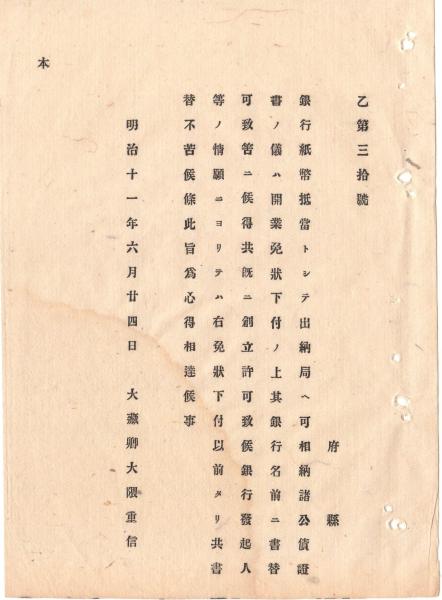 乙第三拾號
府縣
銀行紙幣抵當トシテ出納局ヘ可相納諸公債證
書ノ儀ハ開業免狀下付ノ上其銀行名前ニ書替
可致筈ニ候得共既ニ創立許可致候銀行發起人
等ノ情願ニヨリテハ右免狀下付以前タリ共書
替不苦候條此旨爲心得相達候事
明治十一年六月廿四日 大藏卿大隈重信
本